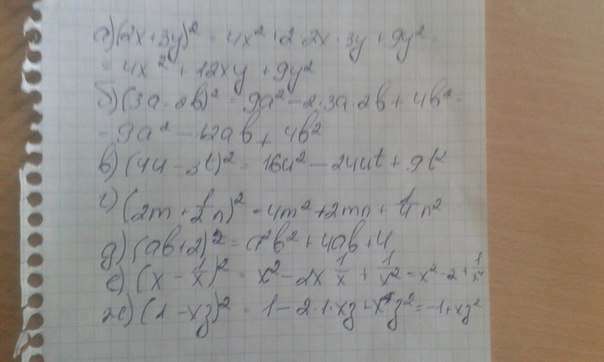 а) (2x+3y)² = 4x²+2·2x·3y+9y² =
= 4x²+12xy+9y²
б) (3a-2b)² = 9a²-2·3a·2b+4b² =
= 9a²-12ab+4b²
в) (4u-3t)² = 16u²-24ut+9t²
г) (2m+1/2n)² = 4m²+2mn+1/4n²
д) (ab+2)² = a²b²+4ab+4
е) (x-1/x)² = x²-2x 1/x+1/x² = x²-2+1/x²
ж) (1-xz)² = 1-2·1·xz+x²z² = -1+xz²